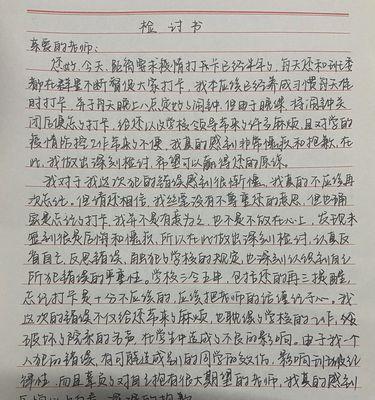 检讨书
亲爱的老师：
您好，今天、距离要求疫情打卡已经半年，每天您和班委
都在群里不断督促大家打卡，我本应该已经养成习惯每天准
时打卡，并于每天晚上八点定好的闹钟，但由于晚课，将闹钟关
闭后便忘了打卡，给您以及学校领导带来的许多麻烦，且对学校
疫情防控工作带来的不便，我真的感到非常愧疚和抱歉，在
此，我做出深刻检讨，希望可以赢得您的原谅。
我对于我这次犯的错误感到很惭愧，我真的不应该再
次忘记，但请您相信，我丝毫没有不尊重您的意思，但也确
实是忘记的打卡，我并不是有意为之，也不是不放在心上，发现未
签到很是后悔和愧疚，所以在此做出深刻检讨，认真反
省自己，反思错误，用犯的学校的规定，也深刻认识到自己
所犯错误的严重性。学校三令五申，包括您的再三提醒，
忘记打卡是十分不应该的，应该把老师的话谨记于心。我
这次的错误不仅给您带来的麻烦，也耽误的学校的工作，
破坏的院系的名声，在学生中造成的不良的影响。由于我一个
人犯的错误，有可能造成别的同学的效仿，影响班级纪
律性，而且辜负的对自己抱有很大期望的老师，我真的感到